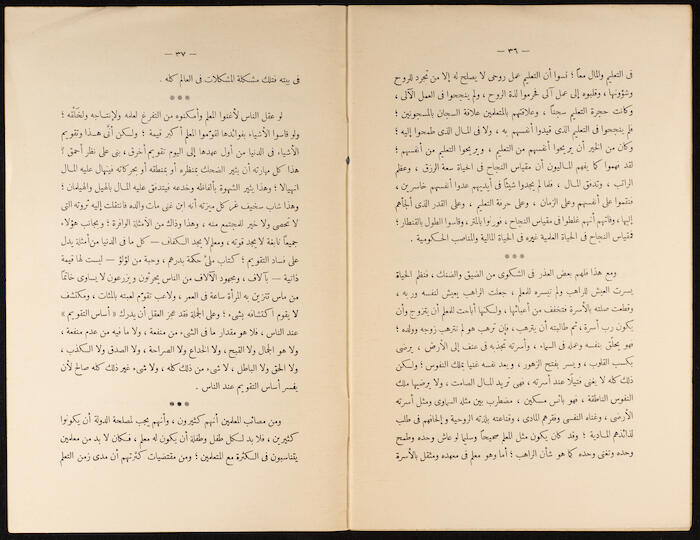 — ٣٦ —
فى التعليم والمال معاً ؛ نسوا أن التعليم عمل روحى لا يصلح له إلا من تجرد للروح
وشؤونها ، وقلبوه إلى عمل آلى فحرموا لذة الروح ، ولم ينجحوا فى العمل الآلى ،
وكانت حجرة التعليم سجناً ، وعلاقتهم بالمتعلمين علاقة السجان بالمسجونين ؛
فلم ينجحوا فى التعليم الذى قيدوا أنفسهم به ، ولا فى المال الذى طمحوا إليه ؛
وكان من الخير أن يريحوا أنفسهم من التعليم ، ويريحوا التعليم من أنفسهم ؛
لقد فهموا كما يفهم الماليون أن مقياس النجاح فى الحياة سعة الرزق ، وعظم
الراتب ، وتدفق المال ، فلما لم يجدوا شيئاً فى أيديهم عدوا أنفسهم خاسرين ،
فنقموا على أنفسهم وعلى الزمان ، وعلى حرفة التعليم ، وعلى القدر الذى ألجأهم
إليها ، وفاتهم أنهم غلطوا فى مقياس النجاح ، فوزنوا بالمتر ، وقاسوا الطول بالقنطار ؛
فمقياس النجاح فى الحياة العلمية غيره فى الحياة المالية والمناصب الحكومية .
***
ومع هذا فلهم بعض العذر فى الشكوى من الضيق والضنك ، فنظم الحياة
يسرت العيش للراهب ولم تيسره للمعلم ، جعلت الراهب يعيش لنفسه وربه ،
وقطعت صلته بالأسرة فتخفف من أعبائها ، ولكنها أباحت للمعلم أن يتزوج وأن
يكون رب أسرة ، ثم طالبته أن يترهب ، فإن ترهب هو لم تترهب زوجه وولده ؛
فهو يحلق بنفسه وعمله فى السماء ، وأسرته تجذبه فى عنف إلى الأرض ، يرضى
بكسب القلوب ، ويسر بفتح الزهور ، ويعد نفسه غنيا بملك النفوس ؛ ولكن
ذلك كله لا يغنى فتيلًا عند أسرته ، فهى تريد المال الصامت ، ولا يرضيها ملك
النفوس الناطقة ، فهو بائس مسكين ، مضطرب بين مثله السماوى ومثل أسرته
الأرضى ، وغناه النفسى وفقرهم المادى ، وقناعته بلذته الروحية وإلحافهم فى طلب
لذائذهم المادية ؛ وقد كان يكون مثل المعلم صحيحاً وسليما لو عاش وحده وطمح
وحده وتغنى وحده كما هو شأن الراهب ؛ أما وهو معلم فى معهده ومثقل بالأسرة
— ٣٧ —
فى بيته فتلك مشكلة المشكلات فى العالم كله .
***
لو عقل الناس لأغنوا المعلم وأمكنوه من التفرغ لعلمه ولإنتاجه ولخَلقه ؛
ولو قاسوا الأشياء بفوائدها لقوّموا المعلم أكبر قيمة ؛ ولكن أنَّى هذا وتقويم
الأشياء فى الدنيا من أول عهدها إلى اليوم تقويم أخرق ، بنى على نظر أحمق ؟
هذا كل مهارته أن يثير الضحك بمنظره أو بمنطقه أو بحركاته فينهال عليه المال
انهيالا ؛ وهذا يثير الشهوة بألفاظه وخدعه فيتدفق عليه المال بالهيل والهيلمان ؛
وهذا شاب سخيف غر كل ميزته أنه ابن غنى مات والده فانتقلت إليه ثروته التى
لا تحصى ولا خير للمجتمع منه ، وهذا وذاك من الأمثلة الوافرة ؛ وبجانب هؤلاء
جميعاً نابغة لا يجد قوته ، ومعلم لا يجد الكفاف — كل ما فى الدنيا من أمثلة يدل
على فساد التقويم ؛ كتاب ملئ حكمة بدرهم ، وحبة من لؤلؤ — ليست لها قيمة
ذاتية — بآلاف ، ومجهود الآلاف من الناس يحرثون ويزرعون لا يساوى خاتماً
من ماس تتزين به المرأة ساعة فى العمر ، ولاعب تقوّم لعبته بالمئات ، ومكتشف
لا يقوم اكتشافه بشىء ؛ وعلى الجملة فقد عجز العقل أن يدرك « أساس التقويم »
عند الناس ، فلا هو مقدار ما فى الشىء من منفعة ، ولا ما فيه من عدم منفعة ،
ولا هو الجمال ولا القبح ، ولا الخداع ولا الصراحة ، ولا الصدق ولا الكذب ،
ولا الحق ولا الباطل ، لا شىء من ذلك كله ، ولا شىء غير ذلك كله صالح لأن
يفسر أساس التقويم عند الناس .
***
ومن مصائب المعلمين أنهم كثيرون ، وأنهم يجب لمصلحة الدولة أن يكونوا
كثيرين ، فلا بد لكل طفل وطفلة أن يكون له معلم ، فكان لا بد من معلمين
يتناسبون فى الكثرة مع المتعلمين ؛ ومن مقتضيات كثرتهم أن مدى زمن التعلم